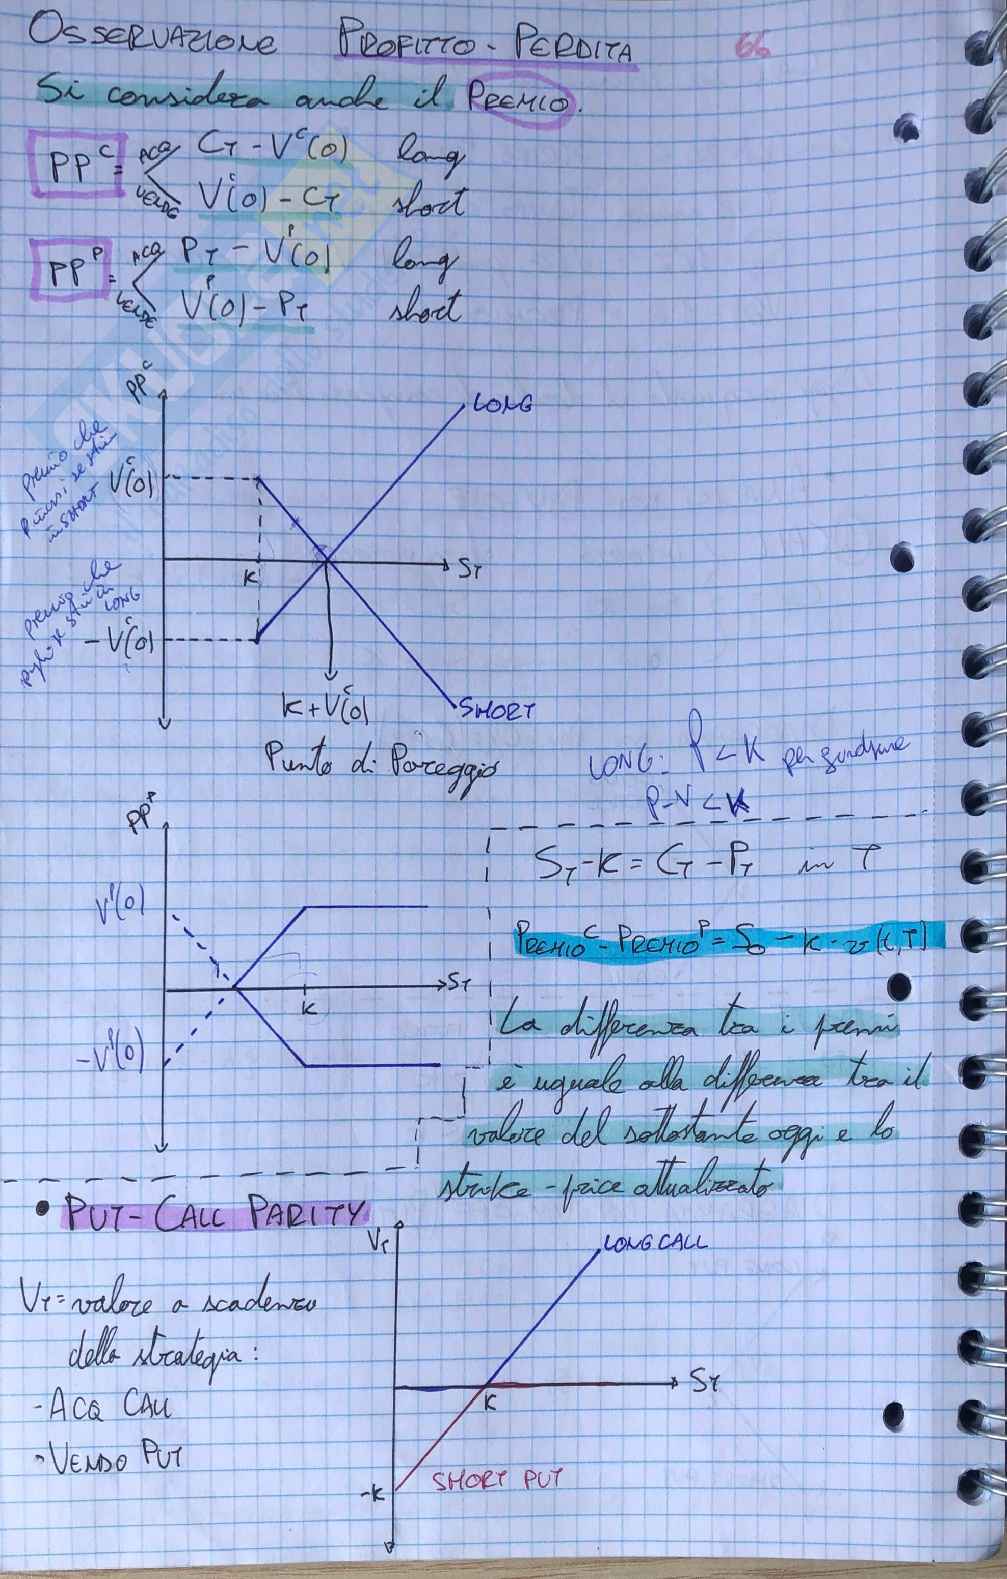 OSSERVAZIONE PROFITTO-PERDITA 66
Si considera anche il PREMIO.
PP^C = ACQ C_T - V^C(0) long
VENDE V^C(0) - C_T short
PP^P = ACQ P_T - V^P(0) long
VENDE V^P(0) - P_T short
PP^C
LONG
premio che
se stai
in SHORT
V^C(0)
K
S_T
premio che
LONG
-V^C(0)
K+V^C(0)
SHORT
Punto di Pareggio
LONG: P < K per guadagnare
P-V < K
PP^P
V^P(0)
S_T
K
-V^P(0)
S_T - K = C_T - P_T in T
PREMIO^C - PREMIO^P = S_0 - K · v(t,T)
La differenza tra i premi
è uguale alla differenza tra il
valore del sottostante oggi e lo
strike-price attualizzato
• PUT-CALL PARITY
V_T
LONG CALL
V_T = valore a scadenza
della strategia:
- ACQ CALL
- VENDO PUT
S_T
K
SHORT PUT
-K